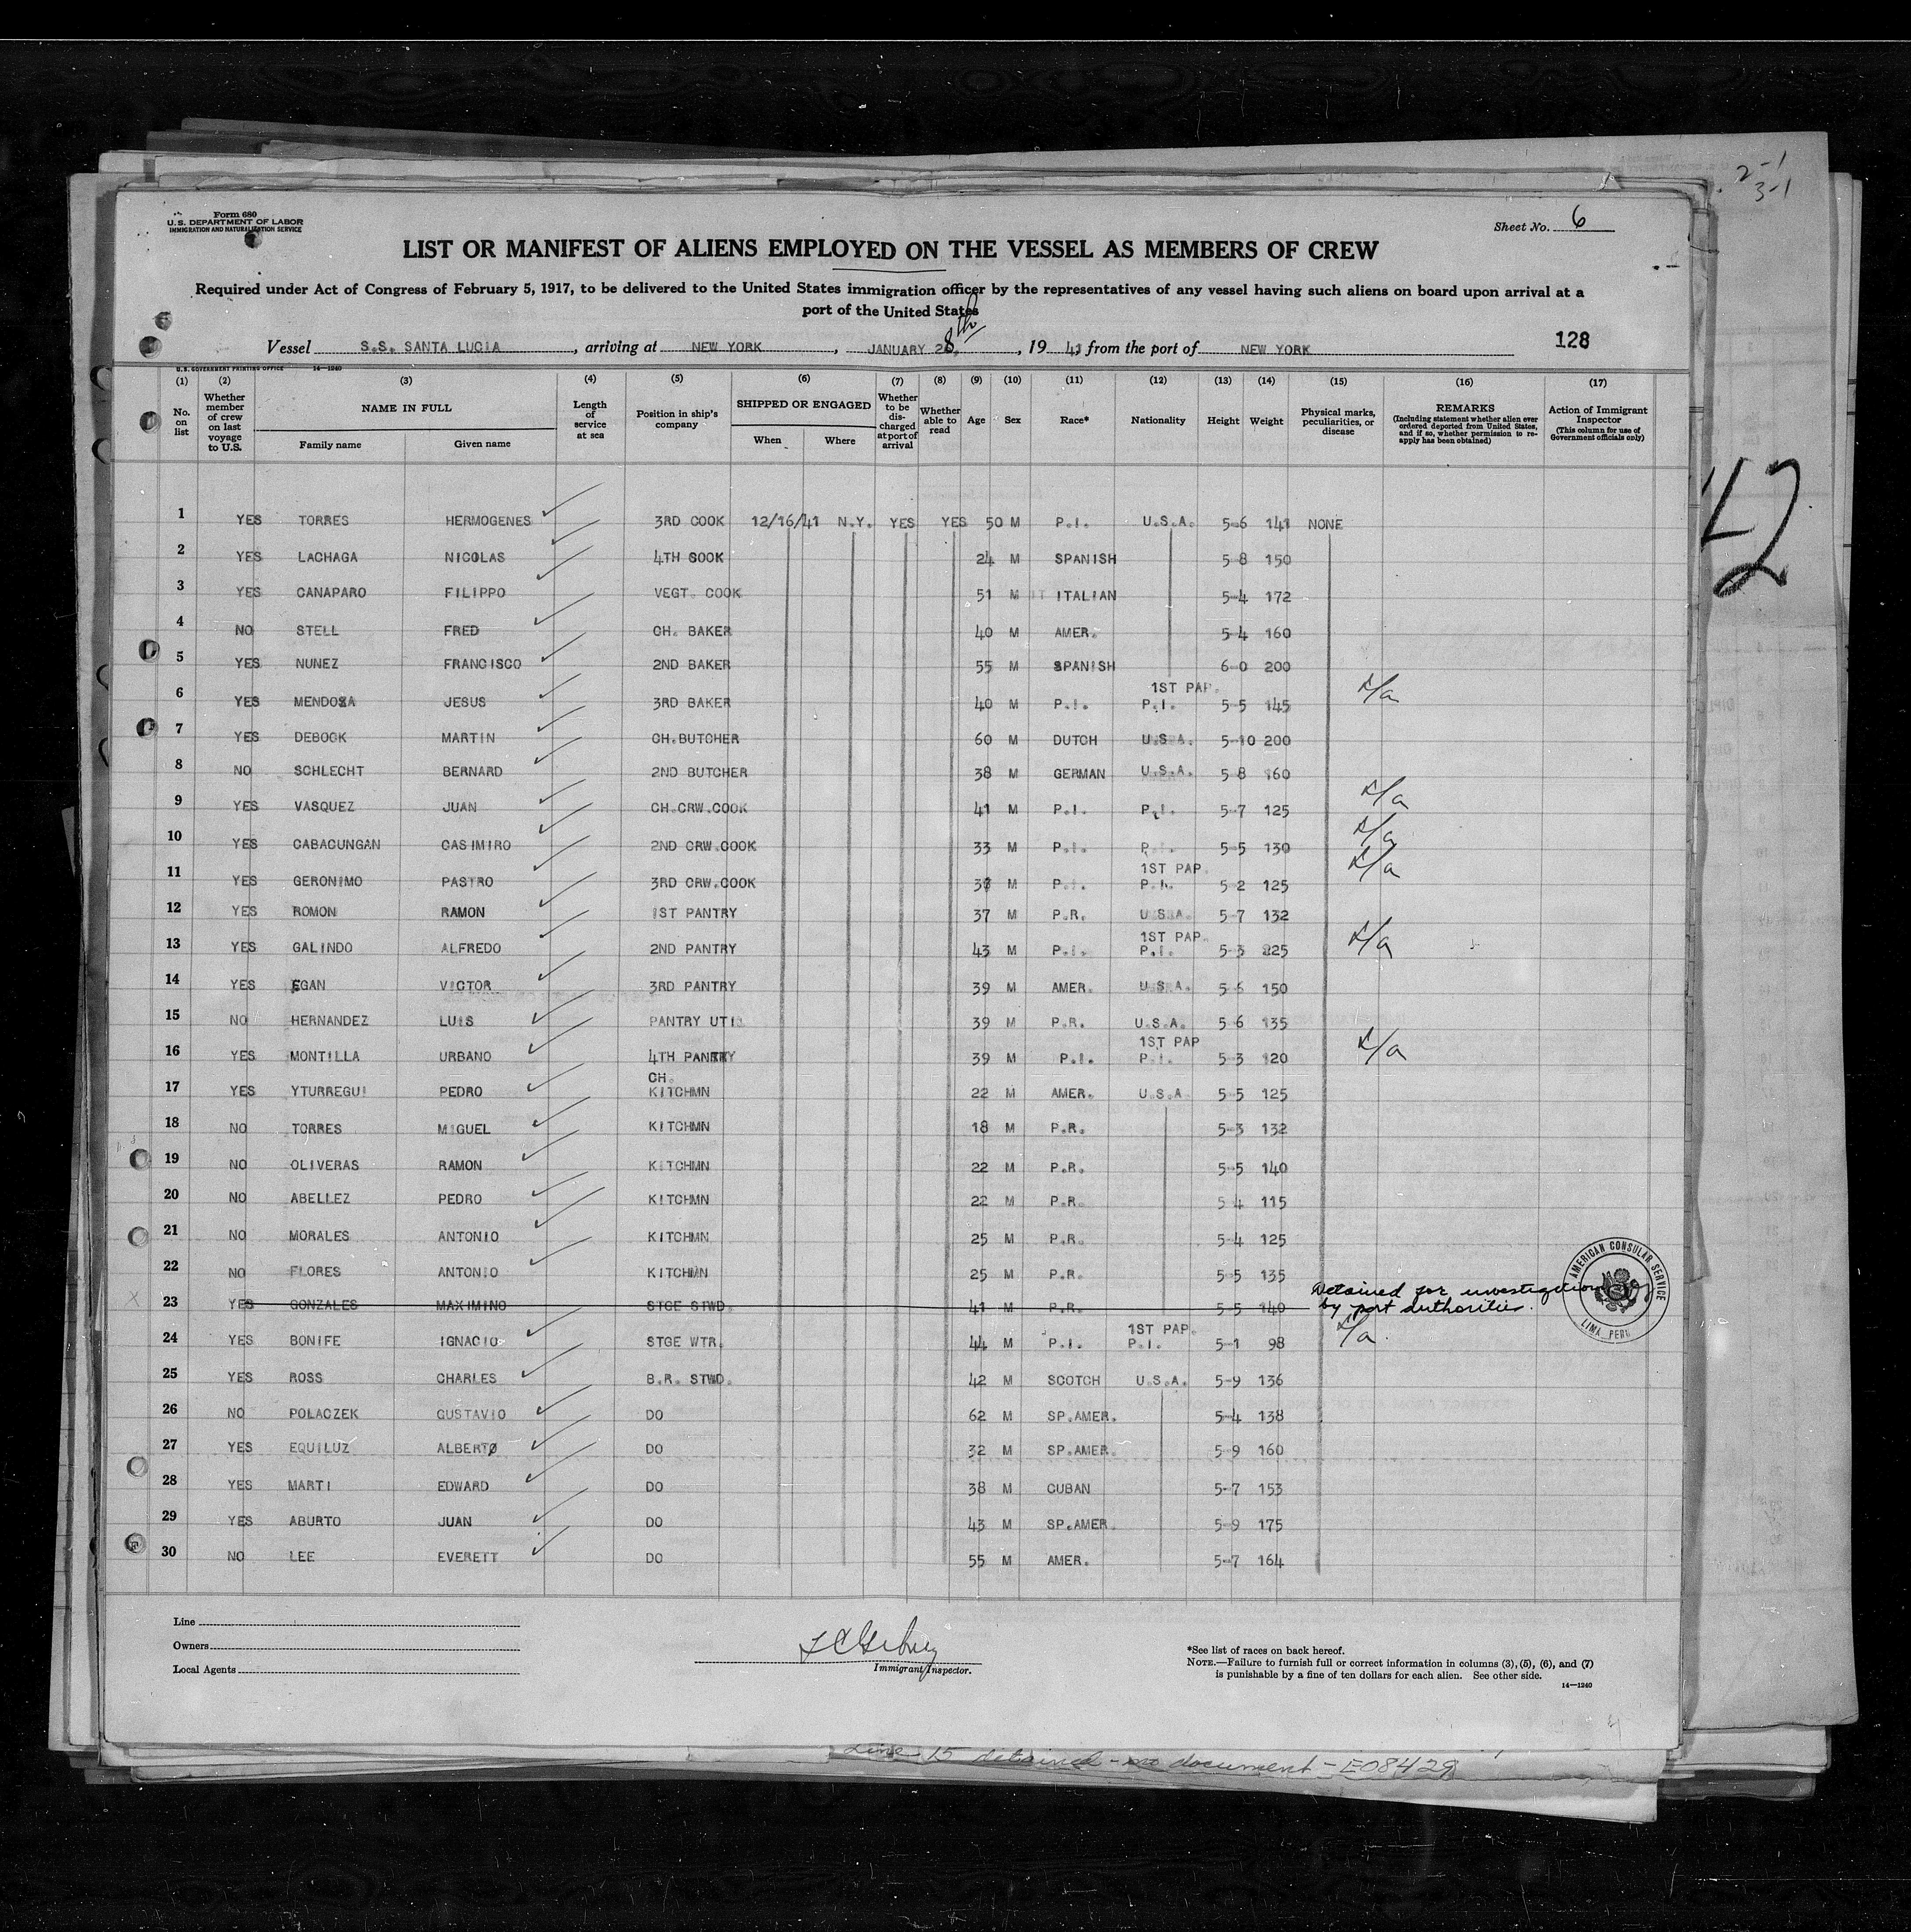 2-1
3-1
Form 680
U.S. DEPARTMENT OF LABOR
IMMIGRATION AND NATURALIZATION SERVICE
Sheet No. 6
LIST OR MANIFEST OF ALIENS EMPLOYED ON THE VESSEL AS MEMBERS OF CREW
Required under Act of Congress of February 5, 1917, to be delivered to the United States immigration officer by the representatives of any vessel having such aliens on board upon arrival at a
port of the United States
Vessel S.S. SANTA LUCIA, arriving at NEW YORK, JANUARY 28th, 19 41, from the port of NEW YORK 128
U.S. GOVERNMENT PRINTING OFFICE 14—1240
(1) (2) (3) (4) (5) (6) (7) (8) (9) (10) (11) (12) (13) (14) (15) (16) (17)
No. on list
Whether member of crew on last voyage to U.S.
NAME IN FULL
Family name Given name
Length of service at sea
Position in ship's company
SHIPPED OR ENGAGED
When Where
Whether to be discharged at port of arrival
Whether able to read
Age Sex Race* Nationality Height Weight
Physical marks, peculiarities, or disease
REMARKS
(Including statement whether alien ever ordered deported from United States, and if so, whether permission to re-apply has been obtained)
Action of Immigrant Inspector
(This column for use of Government officials only)
1 YES TORRES HERMOGENES 3RD COOK 12/16/41 N.Y. YES YES 50 M P.I. U.S.A. 5-6 141 NONE
2 YES LACHAGA NICOLAS 4TH COOK 24 M SPANISH 5-8 150
3 YES CANAPARO FILIPPO VEGT. COOK 51 M ITALIAN 5-4 172
4 NO STELL FRED CH. BAKER 40 M AMER. 5-4 160
5 YES NUNEZ FRANCISCO 2ND BAKER 55 M SPANISH 6-0 200
6 YES MENDOZA JESUS 3RD BAKER 40 M P.I. 1ST PAP. P.I. 5-5 145
7 YES DEBOCK MARTIN CH.BUTCHER 60 M DUTCH U.S.A. 5-10 200
8 NO SCHLECHT BERNARD 2ND BUTCHER 38 M GERMAN U.S.A. 5-8 160
9 YES VASQUEZ JUAN CH.CRW.COOK 41 M P.I. P.I. 5-7 125
10 YES CABACUNGAN CASIMIRO 2ND CRW.COOK 33 M P.I. P.I. 5-5 130
11 YES GERONIMO PASTRO 3RD CRW.COOK M P.I. 1ST PAP. P.I. 5-2 125
12 YES ROMON RAMON 1ST PANTRY 37 M P.R. U.S.A. 5-7 132
13 YES GALINDO ALFREDO 2ND PANTRY 43 M P.I. 1ST PAP. P.I. 5-3
14 YES EGAN VICTOR 3RD PANTRY 39 M AMER. U.S.A. 5-6 150
15 NO HERNANDEZ LUIS PANTRY UTI. 39 M P.R. U.S.A. 5-6 135
16 YES MONTILLA URBANO 4TH PANTRY 39 M P.I. 1ST PAP P.I. 5-3 120
17 YES YTURREGUI PEDRO CH. KITCHMN 22 M AMER. U.S.A 5-5 125
18 NO TORRES MIGUEL KITCHMN 18 M P.R. 5-3 132
19 NO OLIVERAS RAMON KITCHMN 22 M P.R. 5-5 140
20 NO ABELLEZ PEDRO KITCHMN 22 M P.R. 5-4 115
21 NO MORALES ANTONIO KITCHMN 25 M P.R. 5-4 125
22 NO FLORES ANTONIO KITCHMN 25 M P.R. 5-5 135
23 YES GONZALES MAXIMINO STGE STWD. 41 M P.R. 5-5 140 Detained for investigation by port authorities.
24 YES BONIFE IGNACIO STGE WTR. 44 M P.I. 1ST PAP. P.I. 5-1 98
25 YES ROSS CHARLES B.R. STWD. 42 M SCOTCH U.S.A. 5-9 136
26 NO POLACZEK GUSTAVIO DO 62 M SP.AMER. 5-4 138
27 YES EQUILUZ ALBERTO DO 32 M SP.AMER. 5-9 160
28 YES MARTI EDWARD DO 38 M CUBAN 5-7 153
29 YES ABURTO JUAN DO 43 M SP.AMER. 5-9 175
30 NO LEE EVERETT DO 55 M AMER. 5-7 164
AMERICAN CONSULAR SERVICE
LIMA, PERU
42
Line
Owners
Local Agents
Immigrant Inspector.
*See list of races on back hereof.
NOTE.—Failure to furnish full or correct information in columns (3), (5), (6), and (7)
is punishable by a fine of ten dollars for each alien. See other side.
14—1240
Line 15 detained - no document - E08429